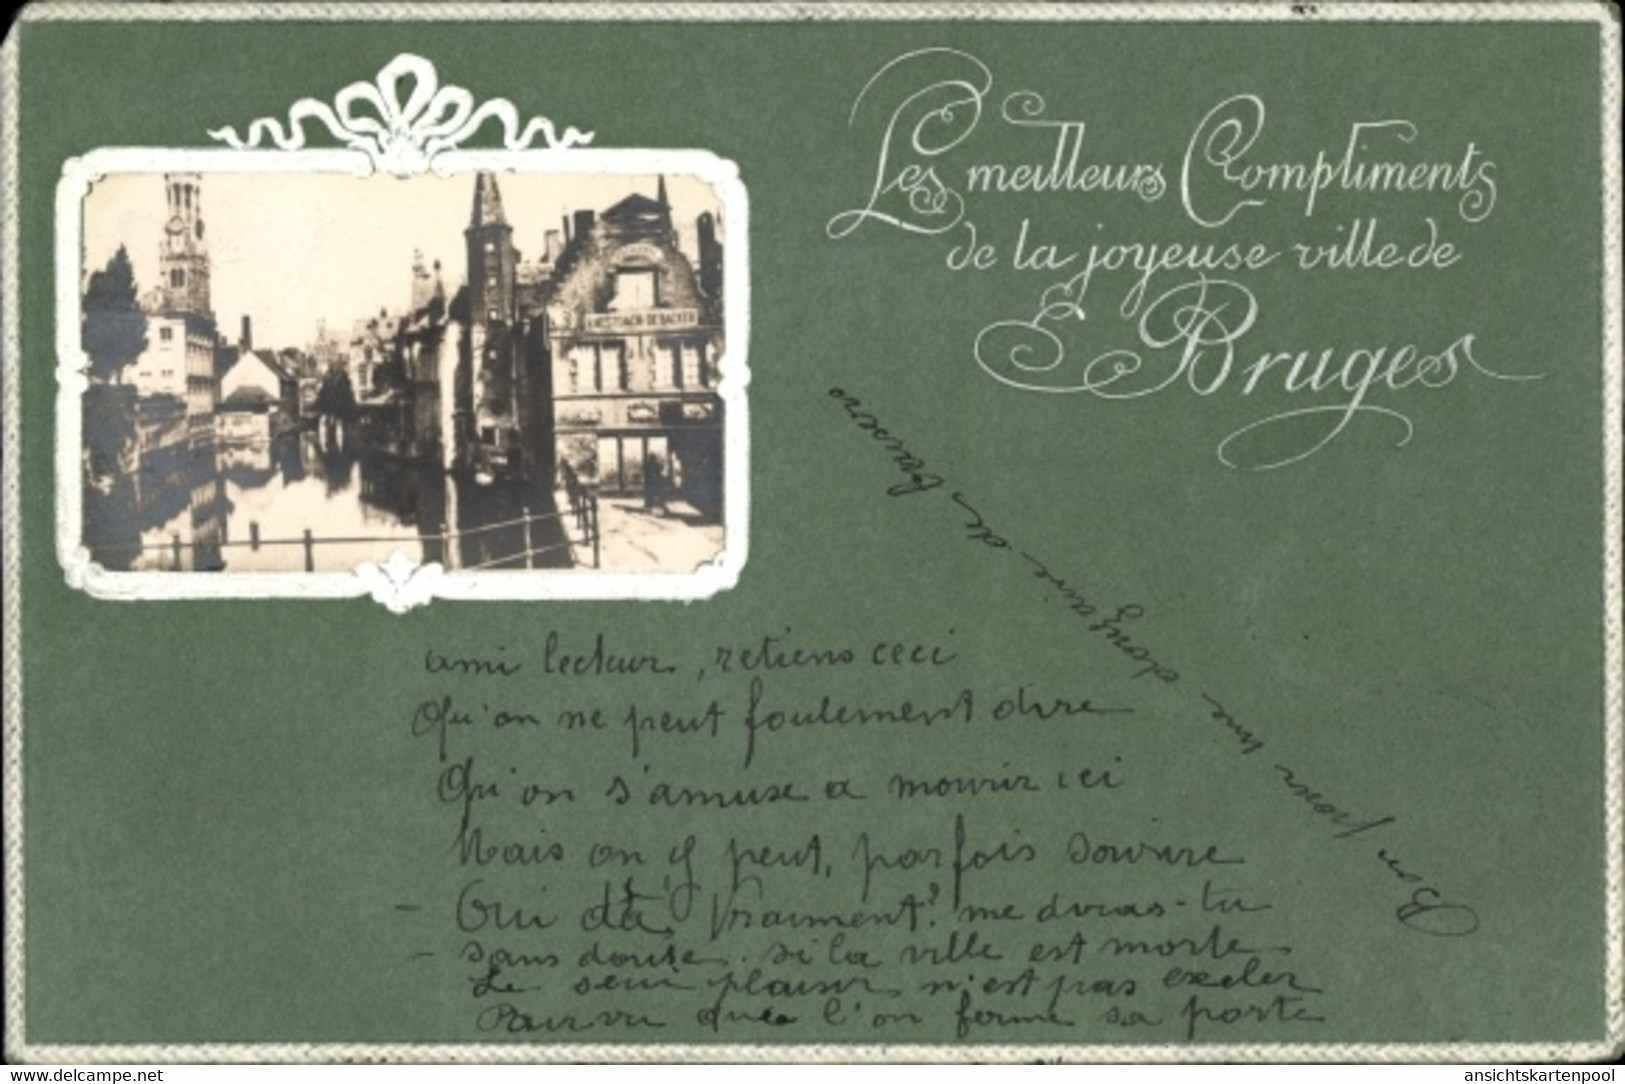 Les meilleurs Compliments
de la joyeuse ville de
Bruges
DE BACKER
Bon pour une douzaine de baisers
ami lecteur, retiens ceci
Qu'on ne peut foulement dire
Qu'on s'amuse a mourir ici
Mais on y peut, parfois sourire
- Oui dà, vraiment? me diras-tu
- Sans doute. si la ville est morte
Le seul plaisir n'est pas exclu
Pourvu que l'on ferme sa porte
www.delcampe.net
ansichtskartenpool